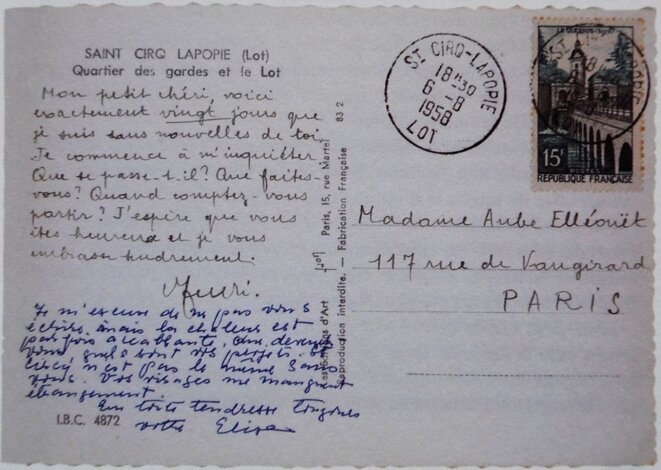 SAINT CIRQ LAPOPIE (Lot)
Quartier des gardes et le Lot
Mon petit chéri, voici
exactement vingt jours que
je suis sans nouvelles de toi.
Je commence à m'inquiéter.
Que se passe-t-il? Que faites-
vous? Quand comptez-vous
partir? J'espère que vous
êtes heureux et je vous
embrasse tendrement.
Je m'excuse de ne pas vous
écrire, mais la chaleur est
parfois accablante. devenez
vous, quels sont vos projets. St
Circq n'est pas le même sans
vous. Vos visages me manquent
étrangement.
En toute tendresse toujours
votre Elisa
I.B.C. 4872
d'Art Paris, 15, rue Martel 83 2
Reproduction interdite. — Fabrication Française
ST CIRQ-LAPOPIE
18H30
6-8
1958
LOT
15F
POSTES
REPUBLIQUE FRANÇAISE
Madame Aube Elléouët
117 rue de Vaugirard
PARIS